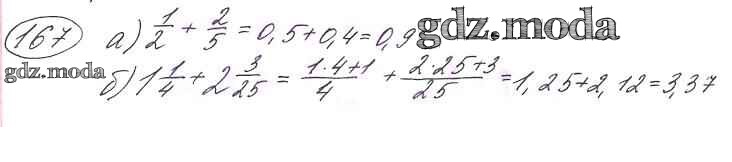 167 а) 1/2 + 2/5 = 0,5+0,4=0,9 gdz.moda
gdz.moda б) 1 1/4 + 2 3/25 = (1·4+1)/4 + (2·25+3)/25 = 1,25+2,12=3,37